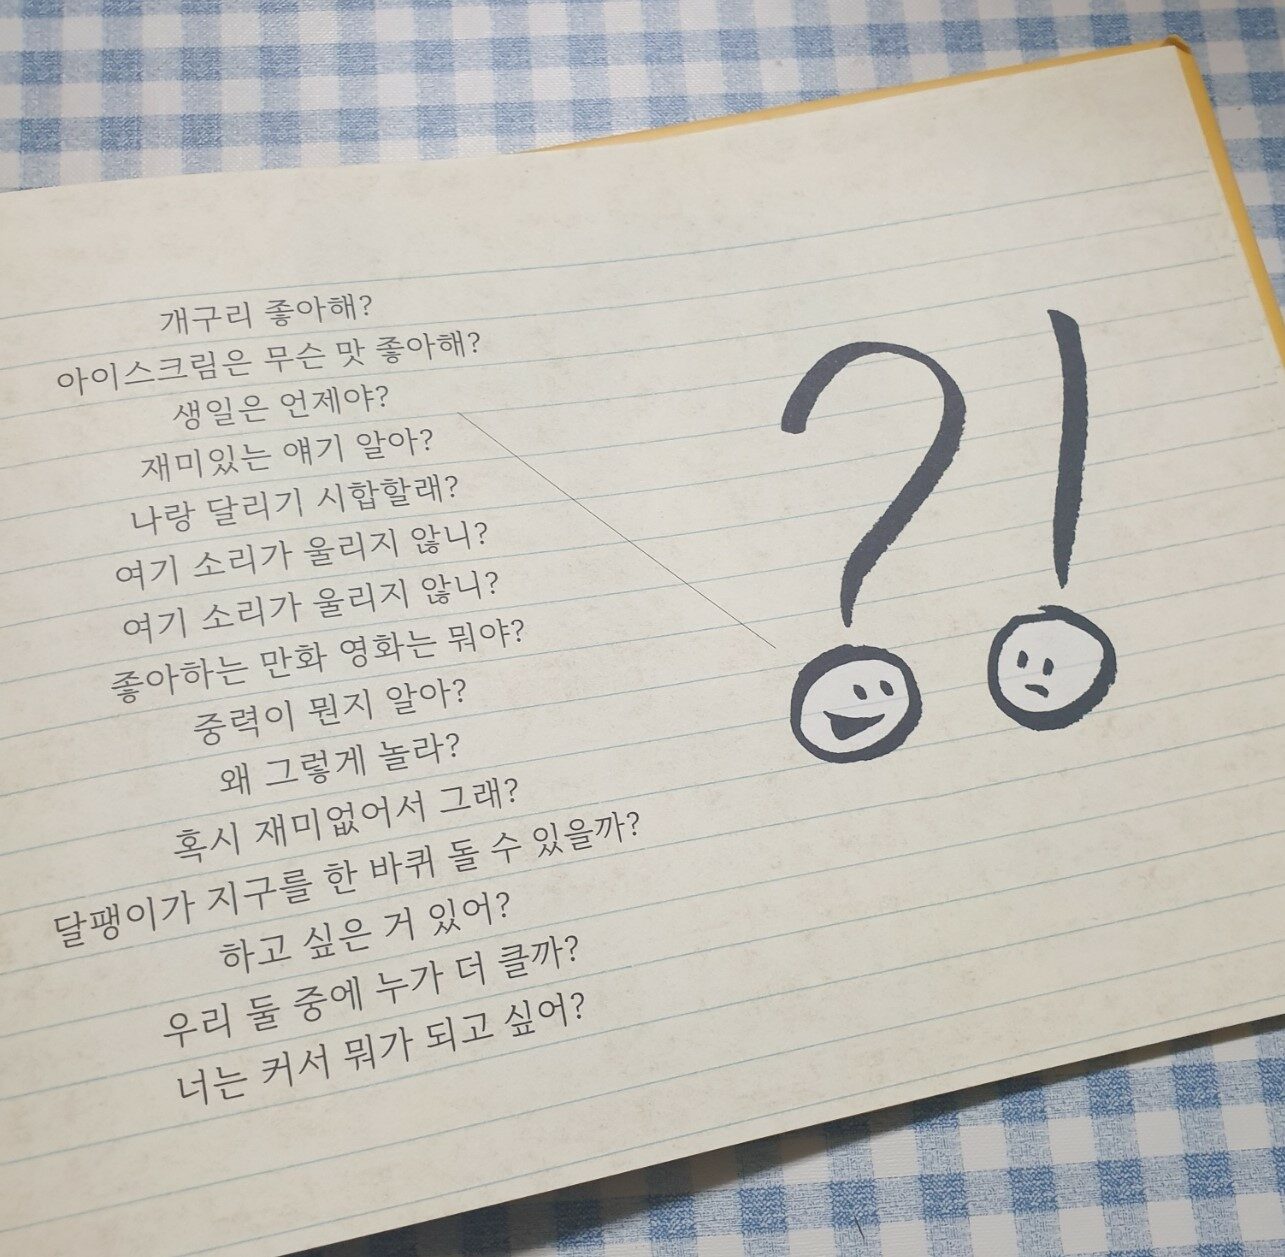 개구리 좋아해?
아이스크림은 무슨 맛 좋아해?
생일은 언제야?
재미있는 얘기 알아?
나랑 달리기 시합할래?
여기 소리가 울리지 않니?
여기 소리가 울리지 않니?
좋아하는 만화 영화는 뭐야?
중력이 뭔지 알아?
왜 그렇게 놀라?
혹시 재미없어서 그래?
달팽이가 지구를 한 바퀴 돌 수 있을까?
하고 싶은 거 있어?
우리 둘 중에 누가 더 클까?
너는 커서 뭐가 되고 싶어?
?!